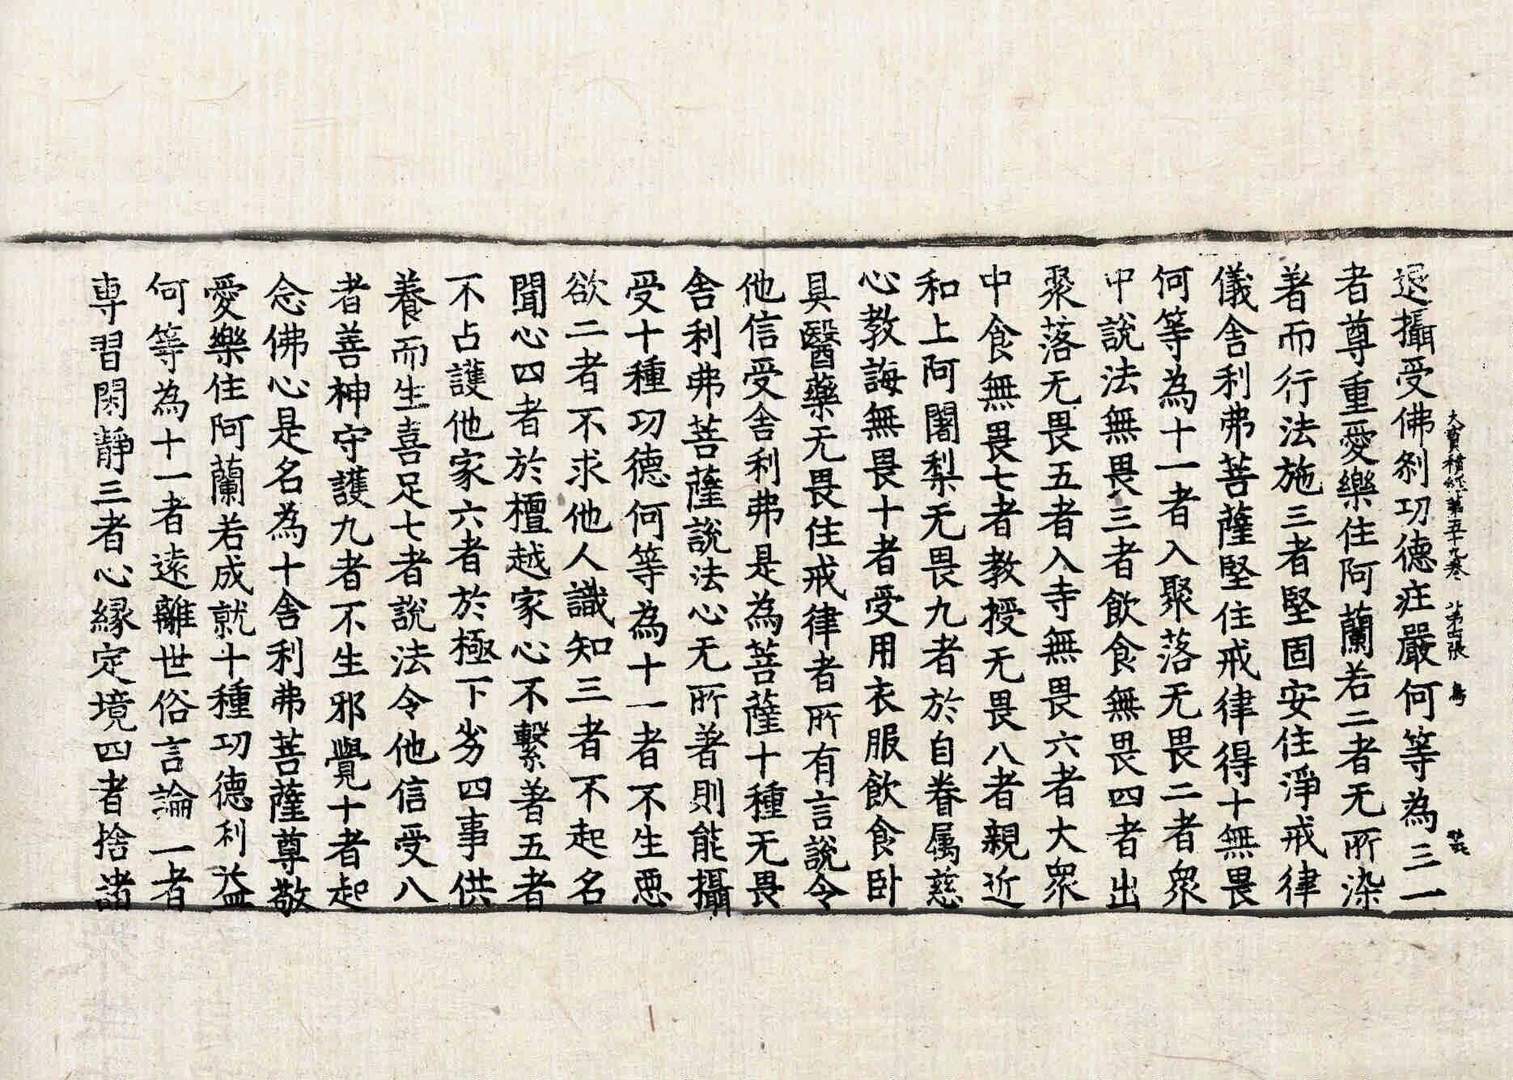 退攝受佛刹功德庄嚴何等為三一
大寶積經第五十九卷　第四張　鳥
者尊重愛樂住阿蘭若二者无所染
著而行法施三者堅固安住淨戒律
儀舍利弗菩薩堅住戒律得十無畏
何等為十一者入聚落无畏二者衆
中說法無畏三者飲食無畏四者出
聚落无畏五者入寺無畏六者大衆
中食無畏七者教授无畏八者親近
和上阿闍梨无畏九者於自眷属慈
心教誨無畏十者受用衣服飲食卧
具醫藥无畏住戒律者所有言說令
他信受舍利弗是為菩薩十種无畏
舍利弗菩薩說法心无所著則能攝
受十種功德何等為十一者不生悪
欲二者不求他人識知三者不起名
聞心四者於檀越家心不繫著五者
不占護他家六者於極下劣四事供
養而生喜足七者說法令他信受八
者善神守護九者不生邪覺十者起
念佛心是名為十舍利弗菩薩尊敬
愛樂住阿蘭若成就十種功德利益
何等為十一者遠離世俗言論二者
専習閑靜三者心縁定境四者捨諸